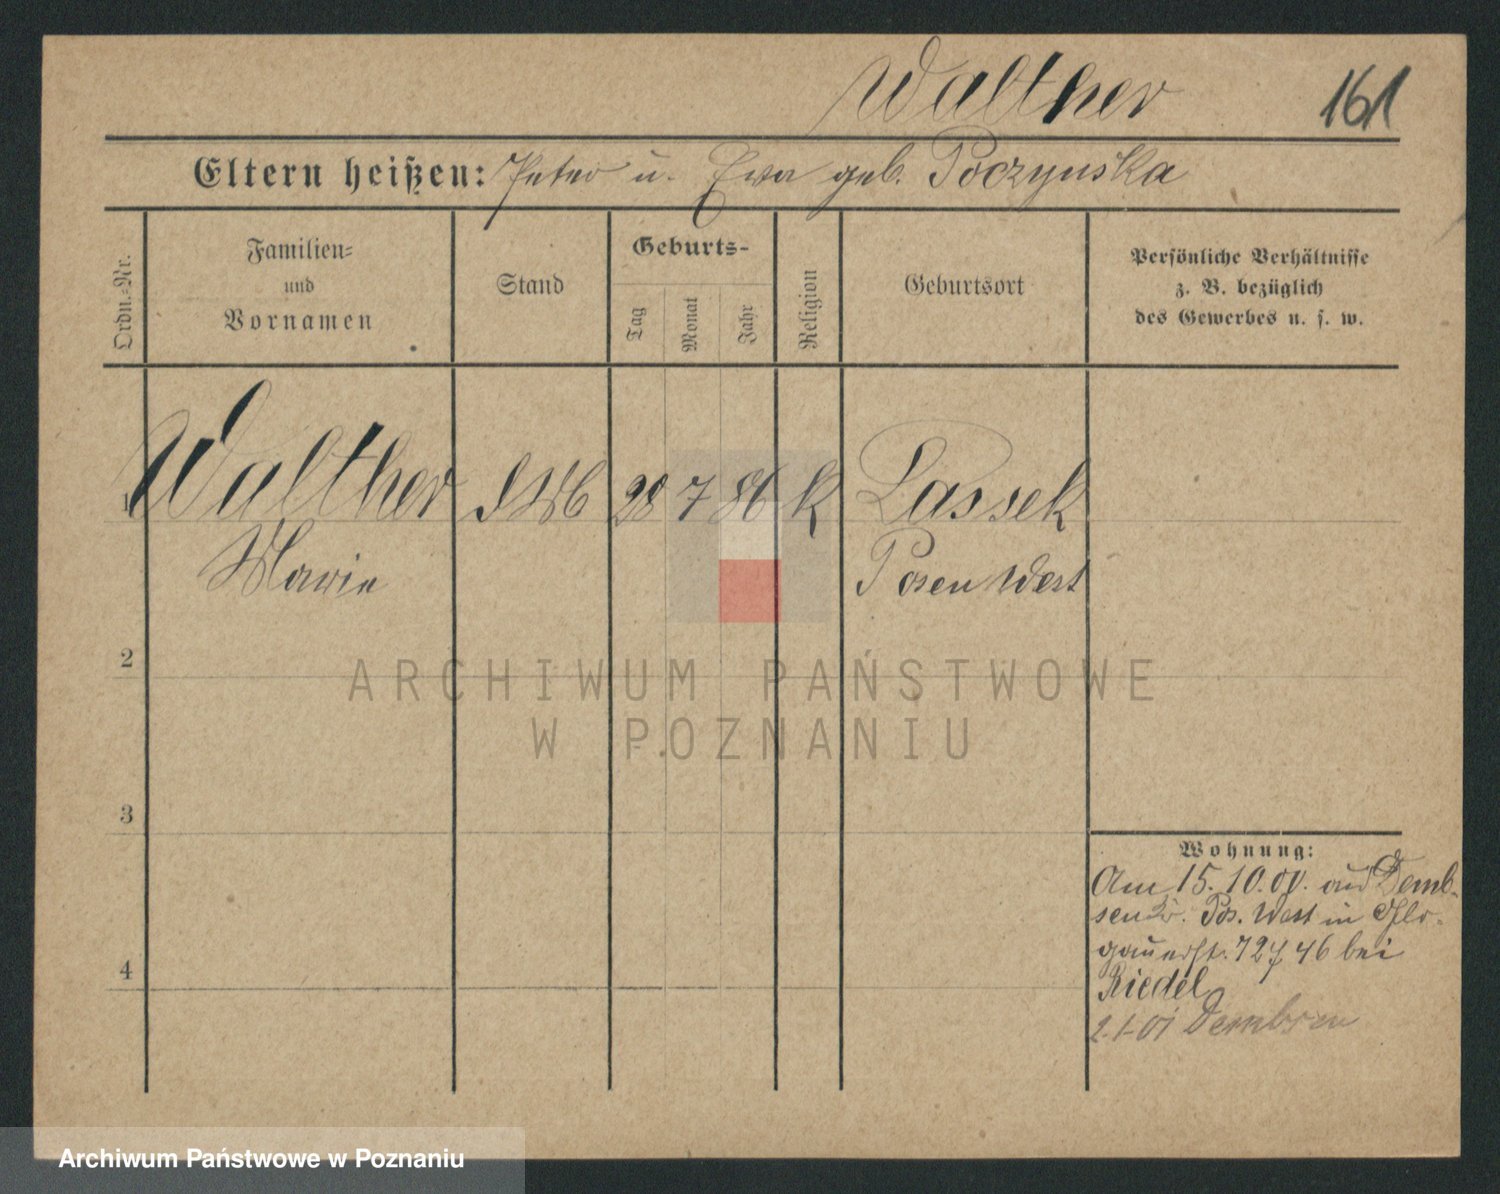 Walther 161
Eltern heißen: Peter u. Eva geb. Poczynska
Ordn.-Nr.
Familien-
und
Vornamen
Stand
Geburts-
Tag
Monat
Jahr
Religion
Geburtsort
Persönliche Verhältnisse
z. B. bezüglich
des Gewerbes u. s. w.
1 Walther 28 7 86 K Lassek
Marie Posen West
2
3
4
Wohnung:
Am 15.10.00. aus Demb-
sen Kr. Pos. West in Glo-
gauerstr. 72/46 bei
Riedel
2.1.01 Dembsen
ARCHIWUM PAŃSTWOWE
W POZNANIU
Archiwum Państwowe w Poznaniu